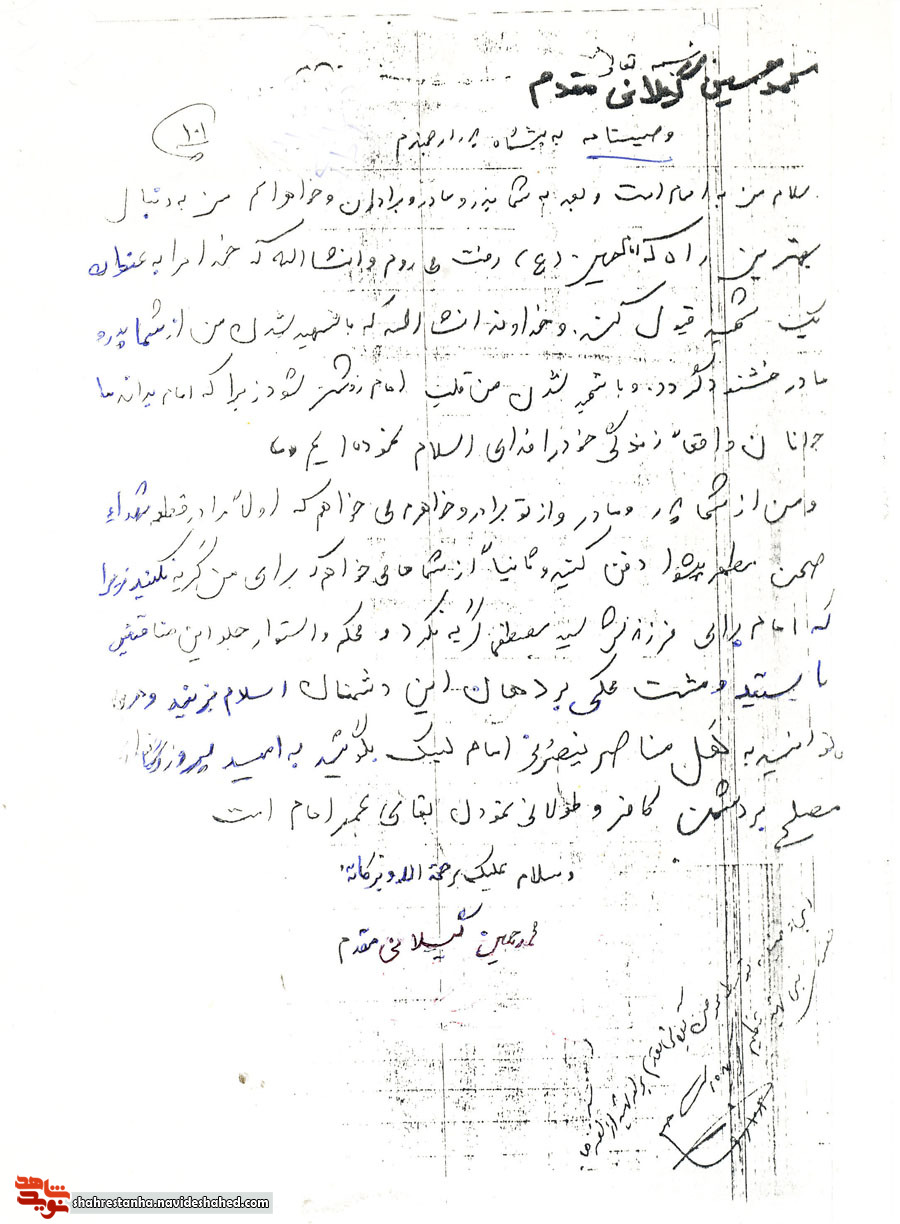 بسمه تعالی
محمد حسین گیلانی مقدم
وصیتنامه به پیشگاه پدر ارجمندم
۱۰۱
سلام من به امام امت و بعد به شما پدر و مادر و برادران و خواهرانم من به دنبال
بهترین راه که امام حسین (ع) رفت می روم و انشااله که خدا مرا به عنوان
یک شهید قبول کند. و خداوند انشااله که با شهید شدن من از شما پدر و
مادر خشنود گردد. و با شهید شدن من قلب امام روشنتر شود زیرا که امام بداند ما
جوانان واقعاً زندگی خود را فدای اسلام نموده ایم
و من از شما پدر و مادر و از تو برادر و خواهرم می خواهم که اولاً مرا در قطعه شهداء
صحن مطهر پیشوا دفن کنید و ثانیاً از شما می خواهم که برای من گریه نکنید زیرا
که امام برای فرزندش سید مصطفی گریه نکرد و محکم و استوار جلو این منافقین
بایستید و مشت محکمی بر دهان این دشمنان اسلام بزنید و
بتوانید به هَل مِن ناصر ینصُرنی امام لبیک بگوئید به امید پیروزی
مسلح بر دشمن کافر و طولانی نمودن بقای عمر امام امت
وسلام علیکم برحمة الله و برکاته
محمد حسین گیلانی مقدم
نوید شاهد
shahrestanha.navideshahed.com